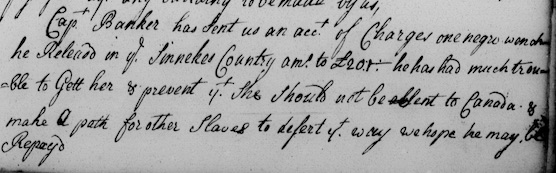 any building to be made by us,
Capt Banker has sent us an acct of Charges one negro wench
he Releasd in ye Sinnekes Country amo. to £20:.: he has had much trou-
-ble to Gett her & prevent yt She Should not be sent to Canada &
make a path for other Slaves to desert yt way we hope he may be
Repayd